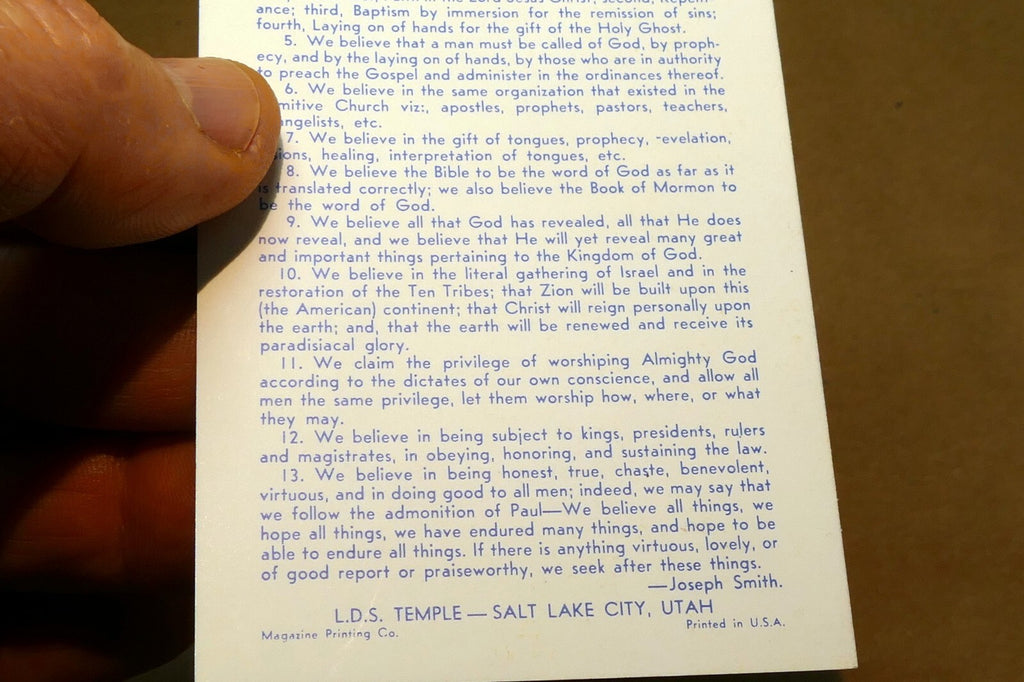 ance; third, Baptism by immersion for the remission of sins;
fourth, Laying on of hands for the gift of the Holy Ghost.
5. We believe that a man must be called of God, by proph-
ecy, and by the laying on of hands, by those who are in authority
to preach the Gospel and administer in the ordinances thereof.
6. We believe in the same organization that existed in the
mitive Church viz:, apostles, prophets, pastors, teachers,
angelists, etc.
7. We believe in the gift of tongues, prophecy, -evelation,
sions, healing, interpretation of tongues, etc.
8. We believe the Bible to be the word of God as far as it
is translated correctly; we also believe the Book of Mormon to
be the word of God.
9. We believe all that God has revealed, all that He does
now reveal, and we believe that He will yet reveal many great
and important things pertaining to the Kingdom of God.
10. We believe in the literal gathering of Israel and in the
restoration of the Ten Tribes; that Zion will be built upon this
(the American) continent; that Christ will reign personally upon
the earth; and, that the earth will be renewed and receive its
paradisiacal glory.
11. We claim the privilege of worshiping Almighty God
according to the dictates of our own conscience, and allow all
men the same privilege, let them worship how, where, or what
they may.
12. We believe in being subject to kings, presidents, rulers
and magistrates, in obeying, honoring, and sustaining the law.
13. We believe in being honest, true, chaste, benevolent,
virtuous, and in doing good to all men; indeed, we may say that
we follow the admonition of Paul—We believe all things, we
hope all things, we have endured many things, and hope to be
able to endure all things. If there is anything virtuous, lovely, or
of good report or praiseworthy, we seek after these things.
—Joseph Smith.
L.D.S. TEMPLE — SALT LAKE CITY, UTAH
Magazine Printing Co. Printed in U.S.A.